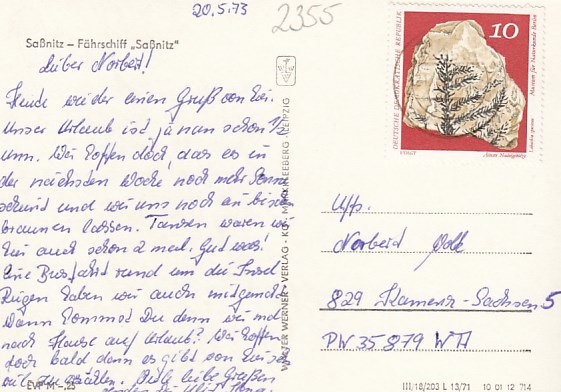 20.5.73
2355
Saßnitz – Fährschiff „Saßnitz"
Lieber Norbert!
Heute wieder einen Gruß von hier.
Unser Urlaub ist ja nun schon 1/2
um. Wir hoffen doch, das es in
der nächsten Woche noch mehr Sonne
scheint und wir uns noch ein bischen
braunen lassen. Tanzen waren wir
hier auch schon 2 mal. Gut was!
Eine Busfahrt rund um die Insel
Rügen haben wir auch mitgemacht.
Wann kommst Du denn wieder mal
nach Hause auf Urlaub? Wir hoffen
doch bald denn es gibt von hier
viel zu erzählen. Viele liebe Grüßen
EVP M –,25
WALTER WERNER · VERLAG · KG · MARKKLEEBERG LEIPZIG
DEUTSCHE DEMOKRATISCHE REPUBLIK
10
Museum für Naturkunde Berlin
Uffz.
Norbert
829 Kamenz-Sachsen 5
PW 35879 WH
III/18/203 L 13/71 10 01 12 714